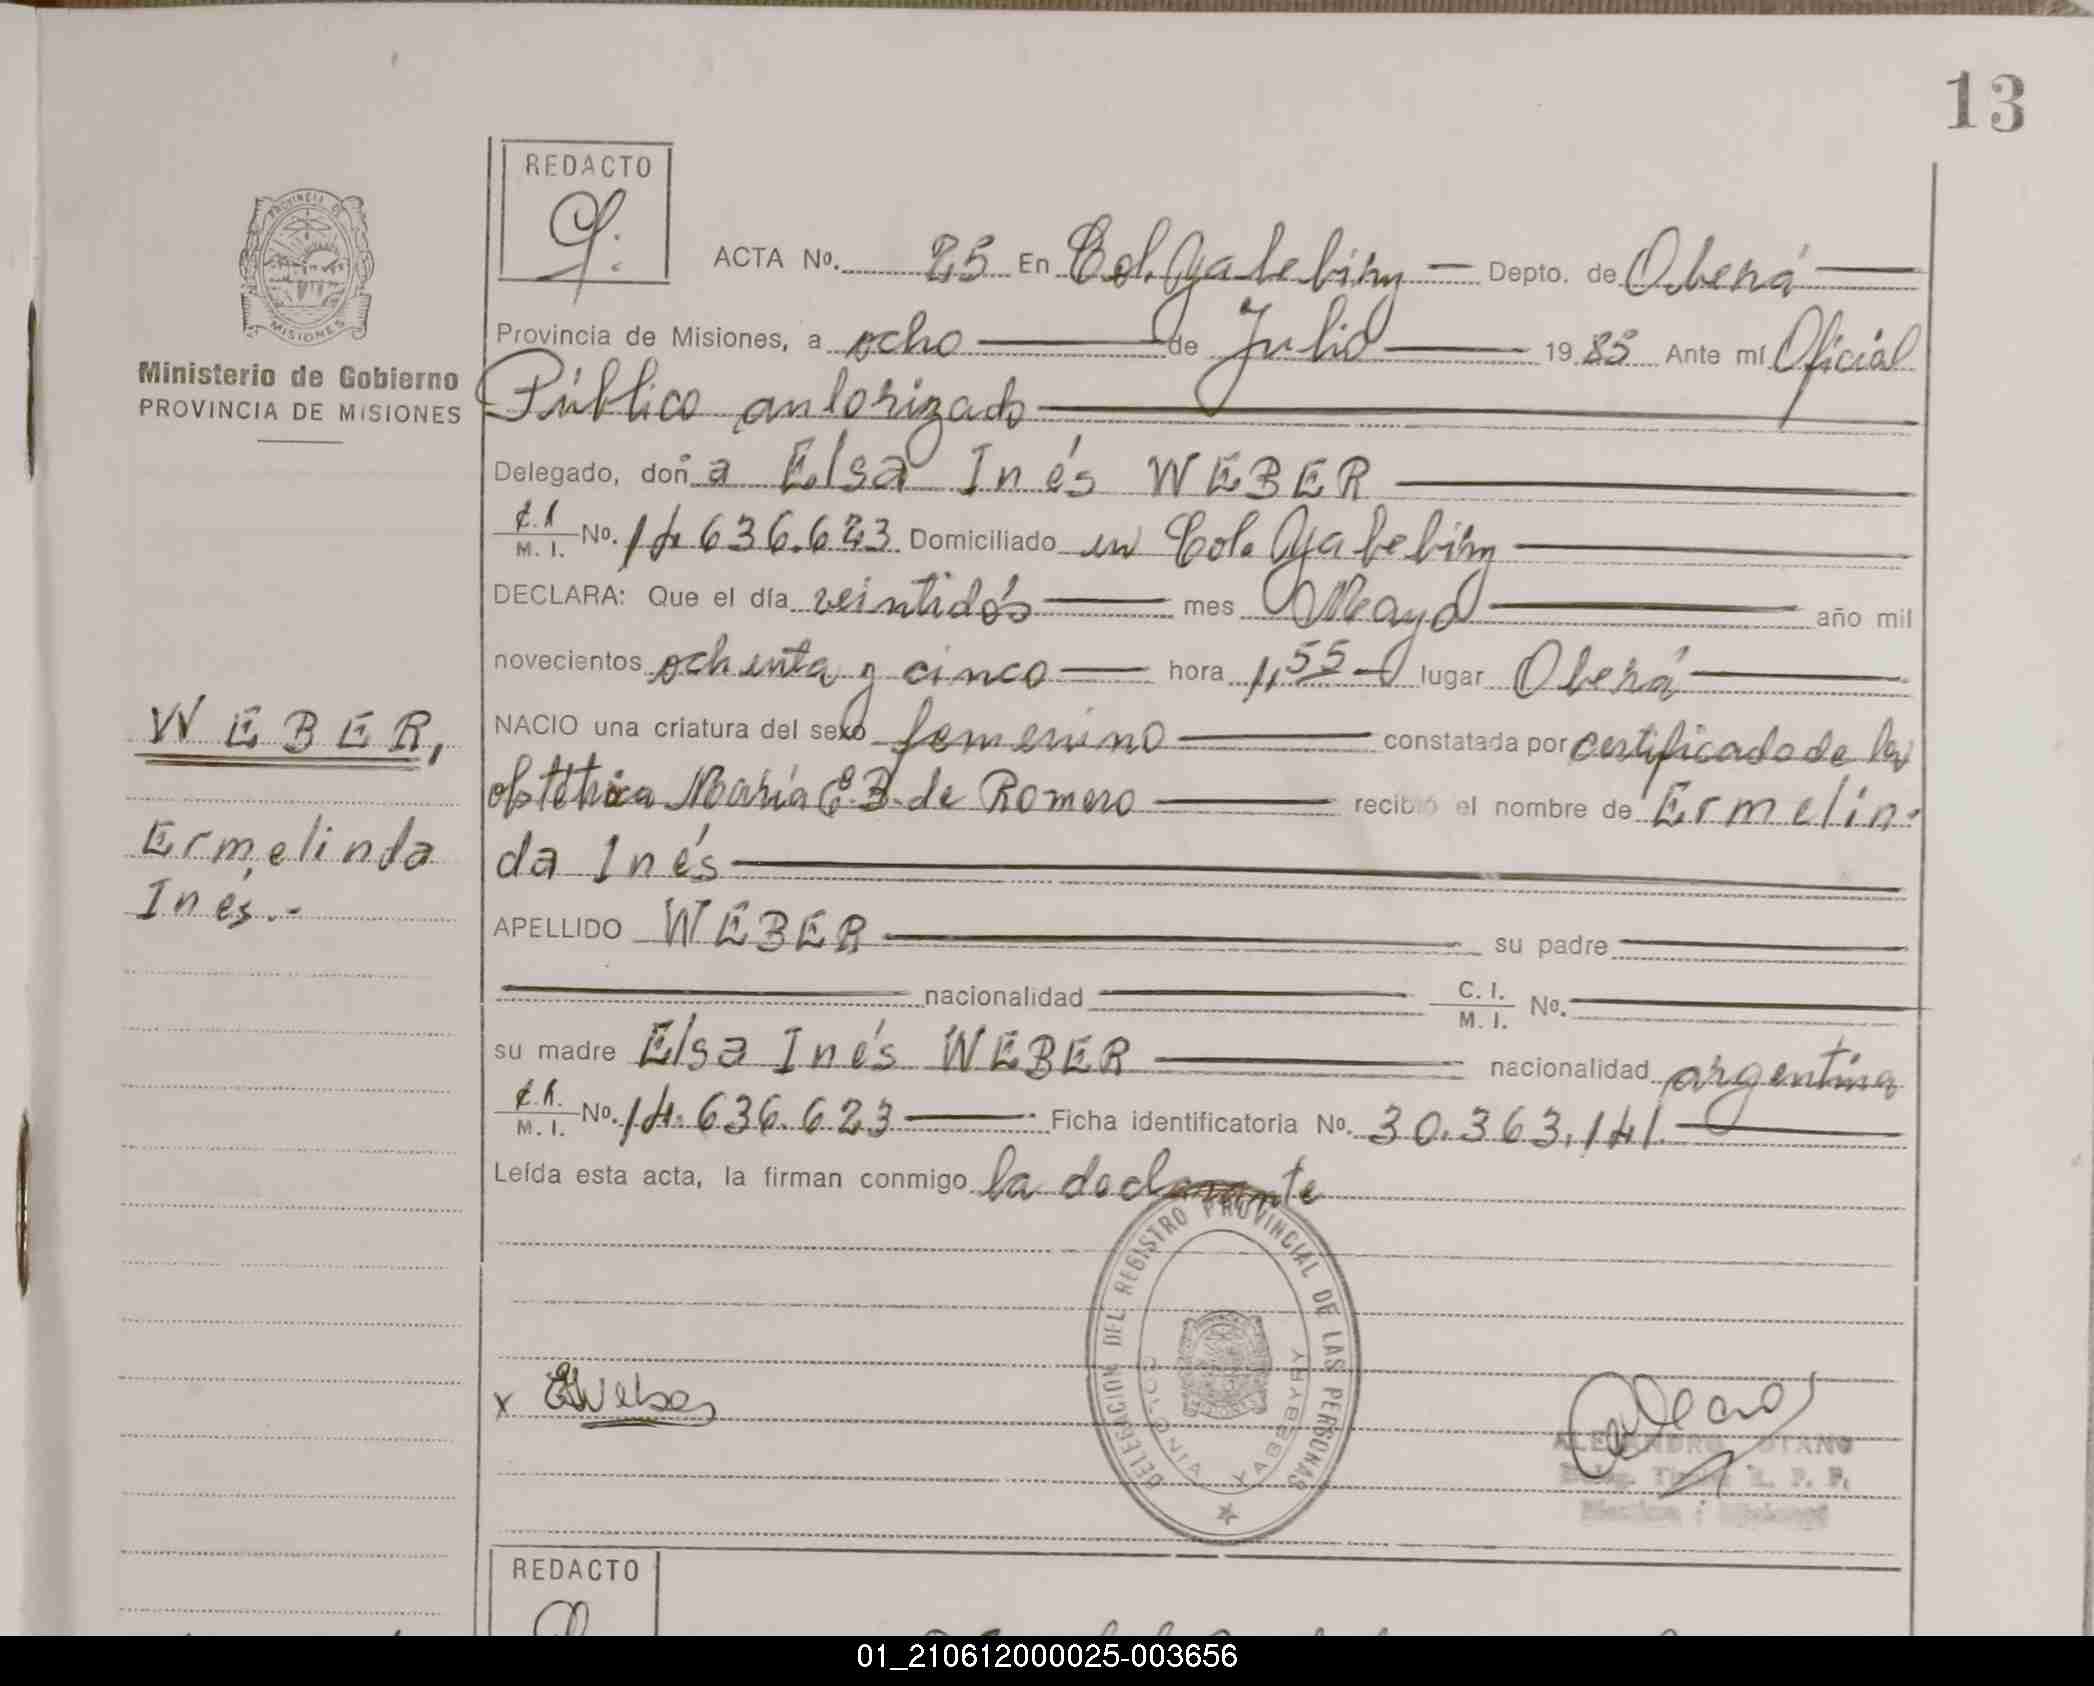 13
REDACTO
ACTA Nº. 25 En Col. Yabebiry Depto. de Oberá
Provincia de Misiones, a ocho de Julio 1985 Ante mí Oficial
Ministerio de Gobierno
PROVINCIA DE MISIONES
Público autorizado
Delegado, doña Elsa Inés WEBER
M. I. No. 14.636.623 Domiciliado en Col. Yabebiry
DECLARA: Que el día veintidós mes Mayo año mil
novecientos ochenta y cinco hora 1,55 lugar Oberá
WEBER,
Ermelinda
Inés.-
NACIO una criatura del sexo femenino constatada por certificado de la
obstétrica María E. B. de Romero recibió el nombre de Ermelin-
da Inés
APELLIDO WEBER su padre
nacionalidad C. I. M. I. No.
su madre Elsa Inés WEBER nacionalidad argentina
M. I. No. 14.636.623 Ficha identificatoria No. 30.363.141.
Leída esta acta, la firman conmigo la declarante
DELEGACION DEL REGISTRO PROVINCIAL DE LAS PERSONAS
COLONIA YABEBYRY
x EWeber
REDACTO
01_210612000025-003656